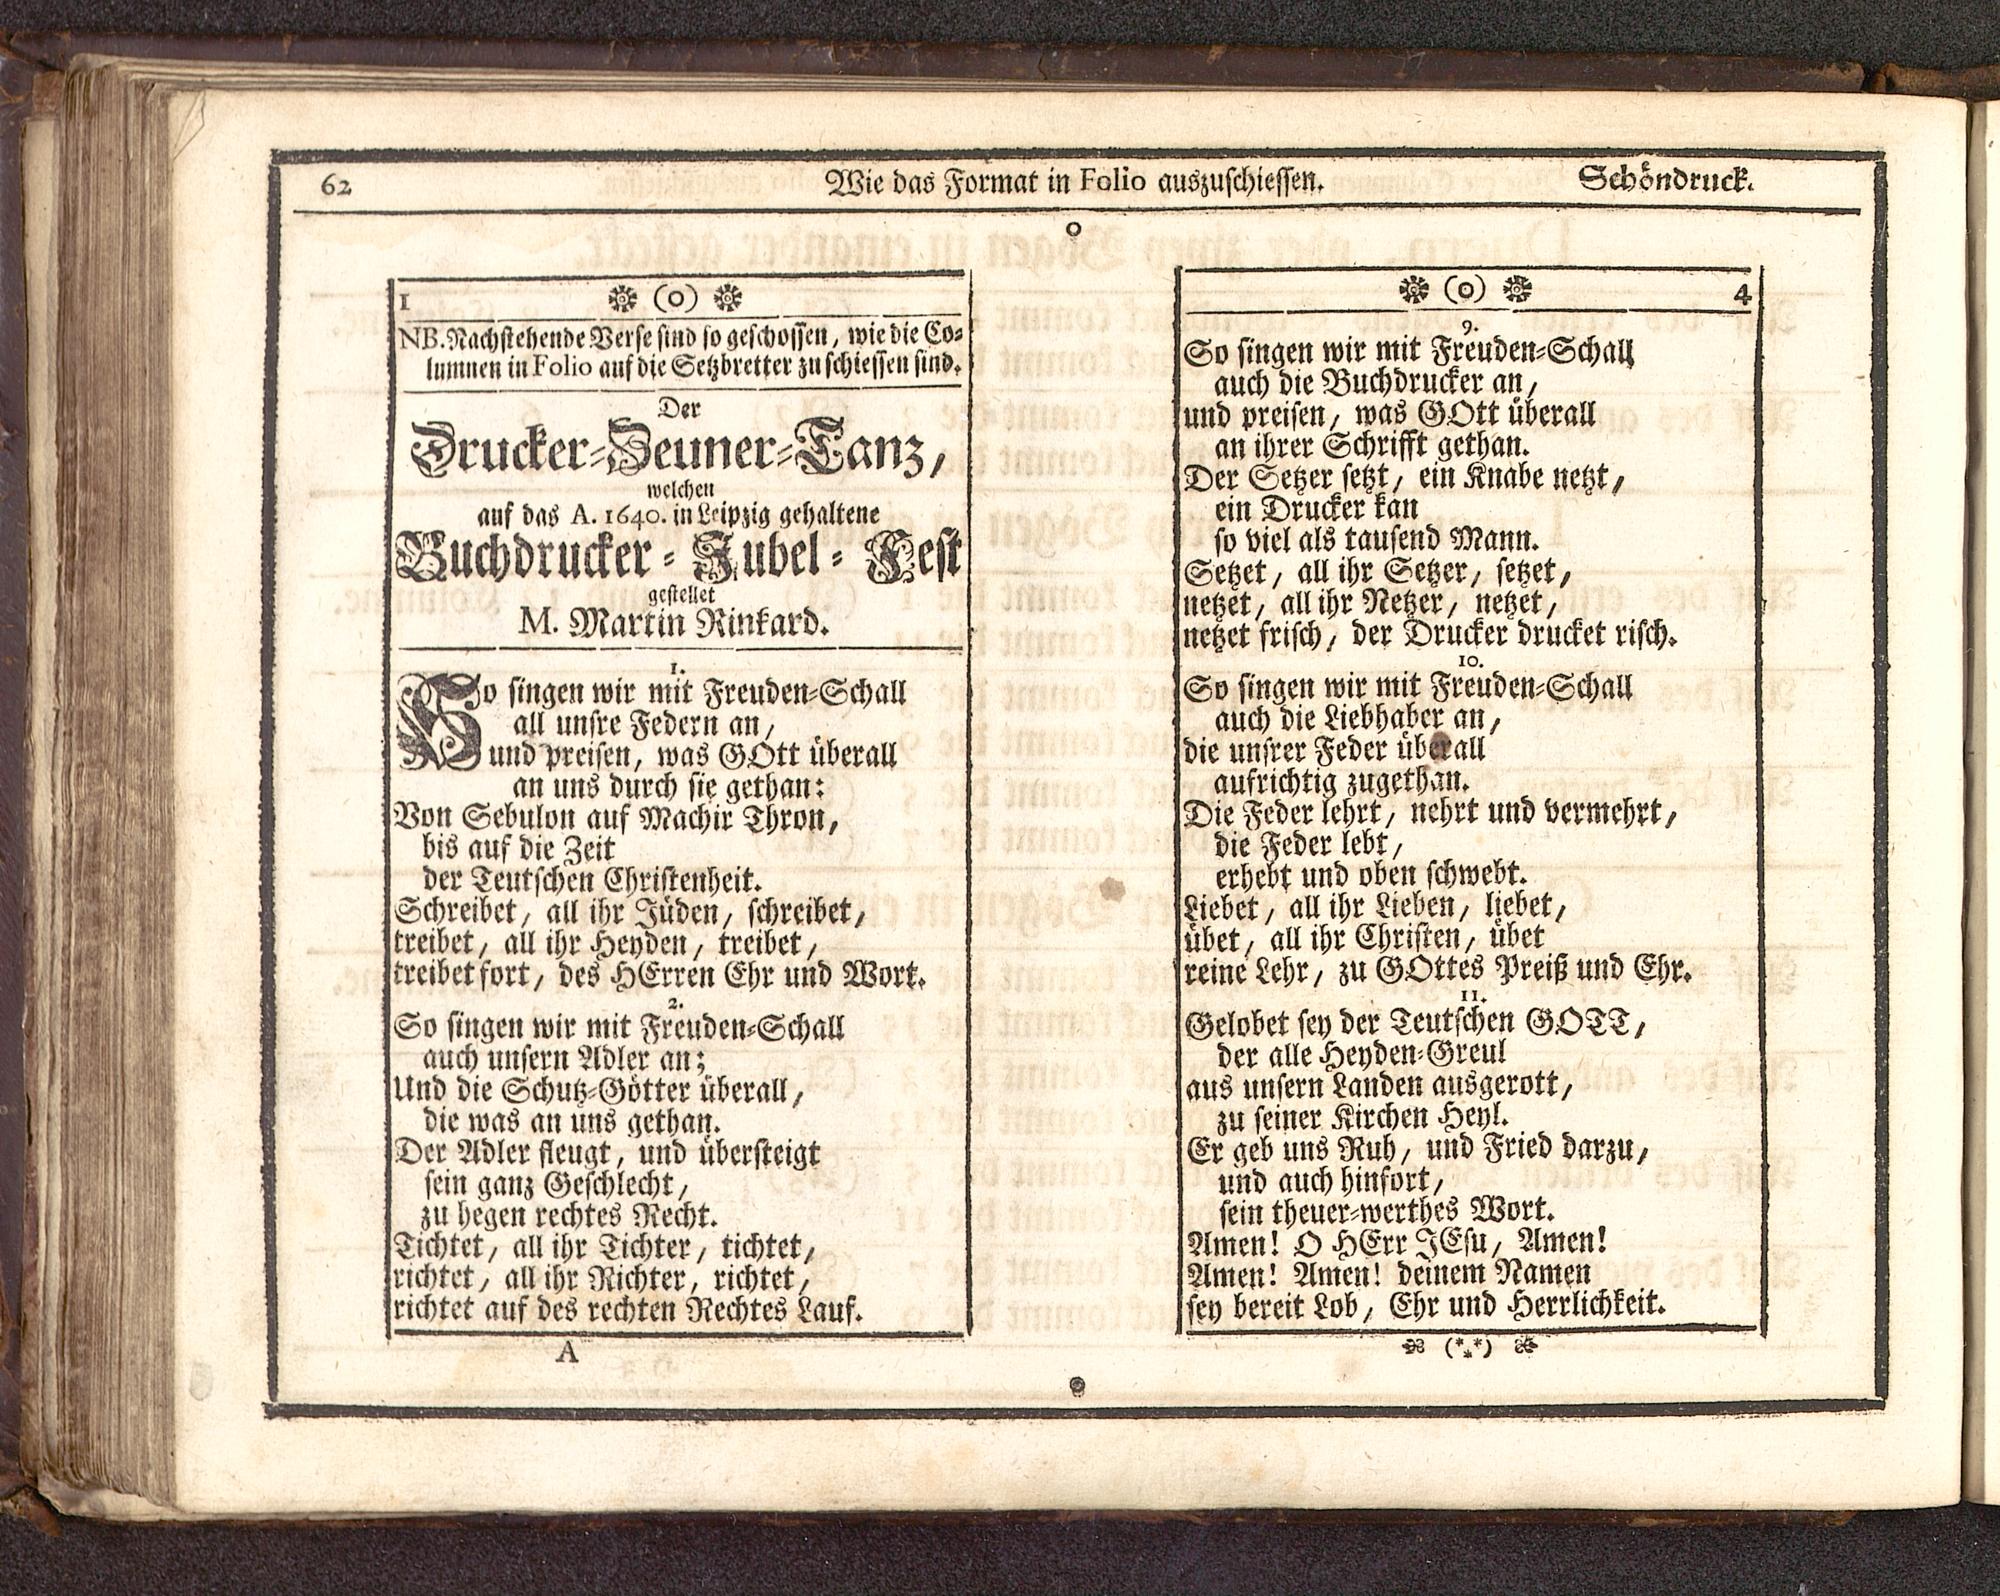 62
Wie das Format in Folio auszuschiessen.
Schöndruck.
1
(o)
NB. Nachstehende Verse sind so geschossen, wie die Co-
lumnen in Folio auf die Setzbretter zu schiessen sind.
Der
Drucker-Zeuner-Tanz,
welchen
auf das A. 1640. in Leipzig gehaltene
Buchdrucker-Jubel-Fest
gestellet
M. Martin Rinkard.
1.
So singen wir mit Freuden-Schall
all unsre Federn an,
und preisen, was GOtt überall
an uns durch sie gethan:
Von Sebulon auf Machir Thron,
bis auf die Zeit
der Teutschen Christenheit.
Schreibet, all ihr Jüden, schreibet,
treibet, all ihr Heyden, treibet,
treibet fort, des HErren Ehr und Wort.
2.
So singen wir mit Freuden-Schall
auch unsern Adler an;
Und die Schutz-Götter überall,
die was an uns gethan.
Der Adler fleugt, und übersteigt
sein ganz Geschlecht,
zu hegen rechtes Recht.
Tichtet, all ihr Tichter, tichtet,
richtet, all ihr Richter, richtet,
richtet auf des rechten Rechtes Lauf.
A
(o)
4
9.
So singen wir mit Freuden-Schall
auch die Buchdrucker an,
und preisen, was GOtt überall
an ihrer Schrifft gethan.
Der Setzer setzt, ein Knabe netzt,
ein Drucker kan
so viel als tausend Mann.
Setzet, all ihr Setzer, setzet,
netzet, all ihr Netzer, netzet,
netzet frisch, der Drucker drucket risch.
10.
So singen wir mit Freuden-Schall
auch die Liebhaber an,
die unsrer Feder überall
aufrichtig zugethan.
Die Feder lehrt, nehrt und vermehrt,
die Feder lebt,
erhebt und oben schwebt.
Liebet, all ihr Lieben, liebet,
übet, all ihr Christen, übet
reine Lehr, zu GOttes Preiß und Ehr.
11.
Gelobet sey der Teutschen GOTT,
der alle Heyden-Greul
aus unsern Landen ausgerott,
zu seiner Kirchen Heyl.
Er geb uns Ruh, und Fried darzu,
und auch hinfort,
sein theuer-werthes Wort.
Amen! O HErr JEsu, Amen!
Amen! Amen! deinem Namen
sey bereit Lob, Ehr und Herrlichkeit.
(***)